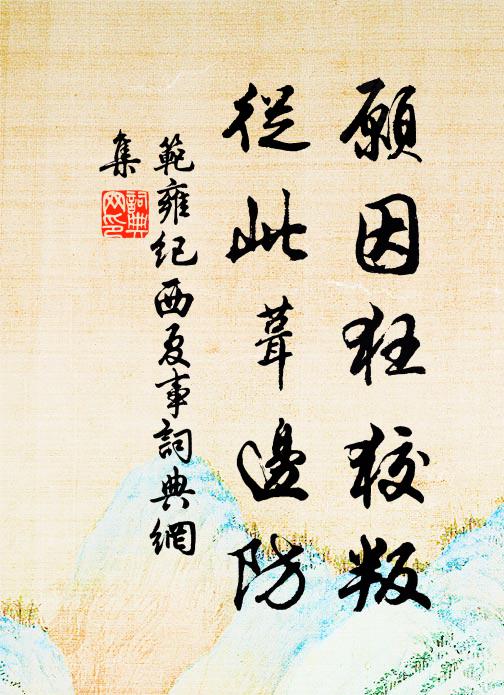 願因狂狡叛
從此葺邊防
範雍紀西夏事詞典網
集
詞典
网印